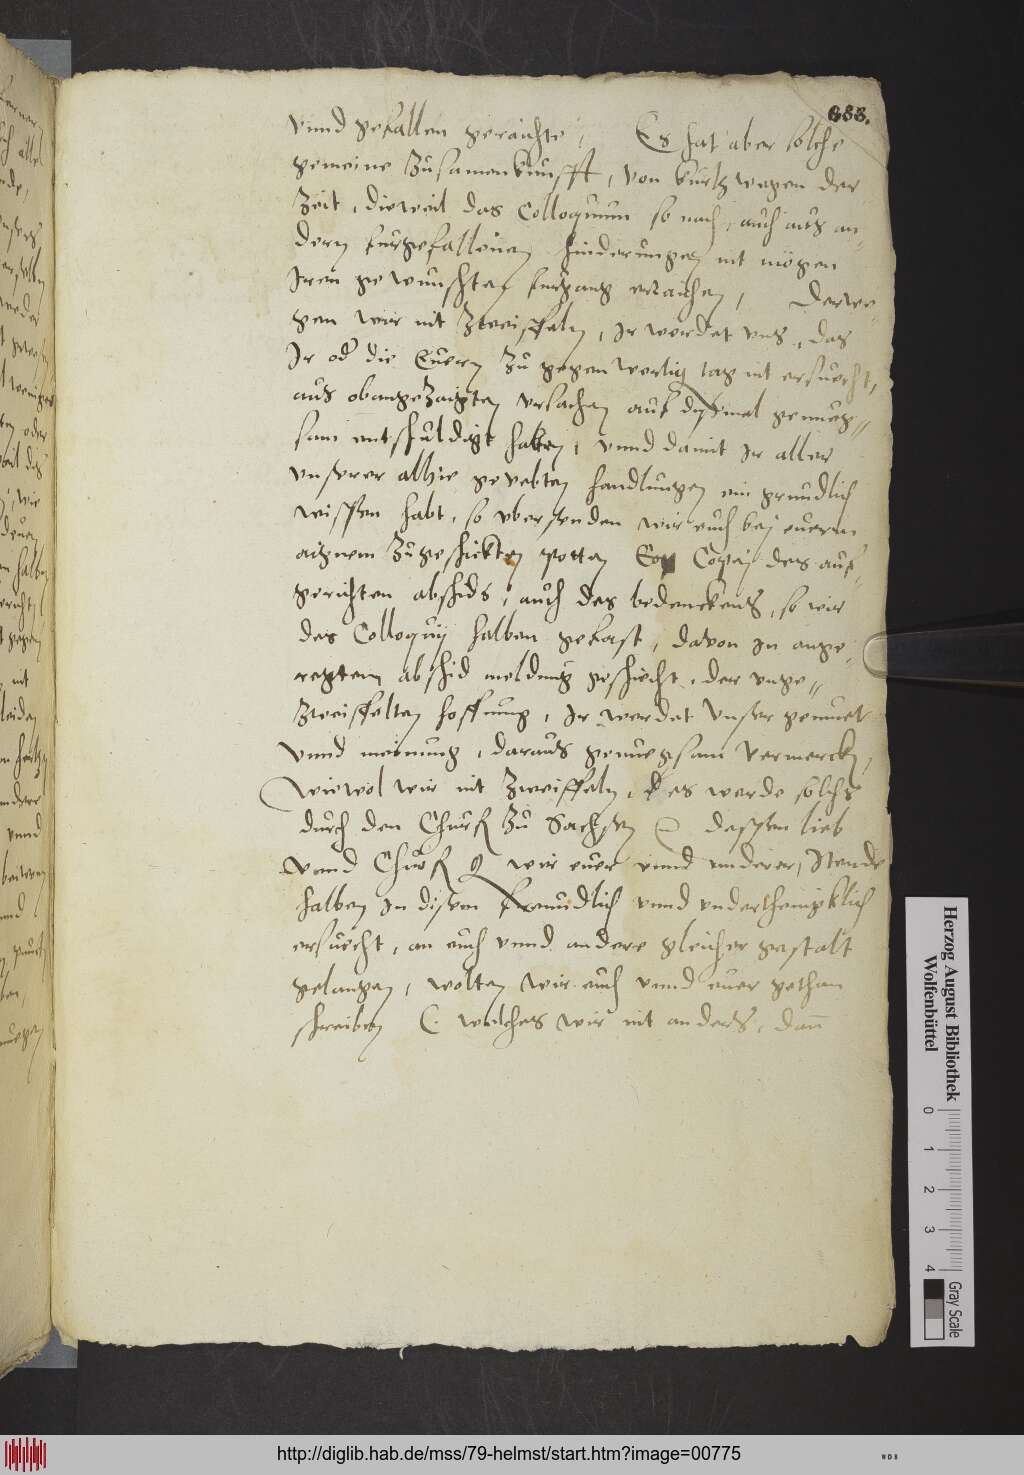 633.
vnnd gefallen geraichte, Es hat aber solche
gemeine Zusamenkunfft, von kurtz wegen der
Zeit, dieweil das Colloquium so nach, auch aus an-
dern furgefallenen hinderungen nit mögen
Iren gewunschten furgang erraichen, Derwe-
gen wir nit Zweiffeln, Ir werdet vns, das
Ir od die Euern Zu gegenwertig tag nit ersuecht,
aus obangeZaigten vrsachen auf dißmal genueg-
sam entschuldigt haben, vnnd damit Ir aller
vnserer alhie geuebten handlungen ein grundlich
wissen habt, so vbersenden wir euch bej euerm
aignem Zugeschickten potten Copej des auf-
gerichten abschids, auch des bedenckens, so wir
des Colloquij halben gefast, dauon in ange-
regtem abschid meldung geschicht, der unge-
Zweiffelten hoffnung, Ir werdet vnser gemuet
vnnd meinung, daraus genuegsam vermercken,
Wiewol wir nit Zweiffeln, es werde solchs
durch den Churf Zu Sachsen dessen lieb
vnnd Churf g wir euer vnnd anderer Stende
halben in disem freundlich vnnd vnderthenigklich
ersuecht, an euch vnnd andere gleicher gestalt
gelangen, wolten wir euch vnnd euer gethan
schreiben welches wir nit anders, dan
Herzog August Bibliothek
Wolfenbüttel
0 1 2 3 4
Gray Scale
http://diglib.hab.de/mss/79-helmst/start.htm?image=00775